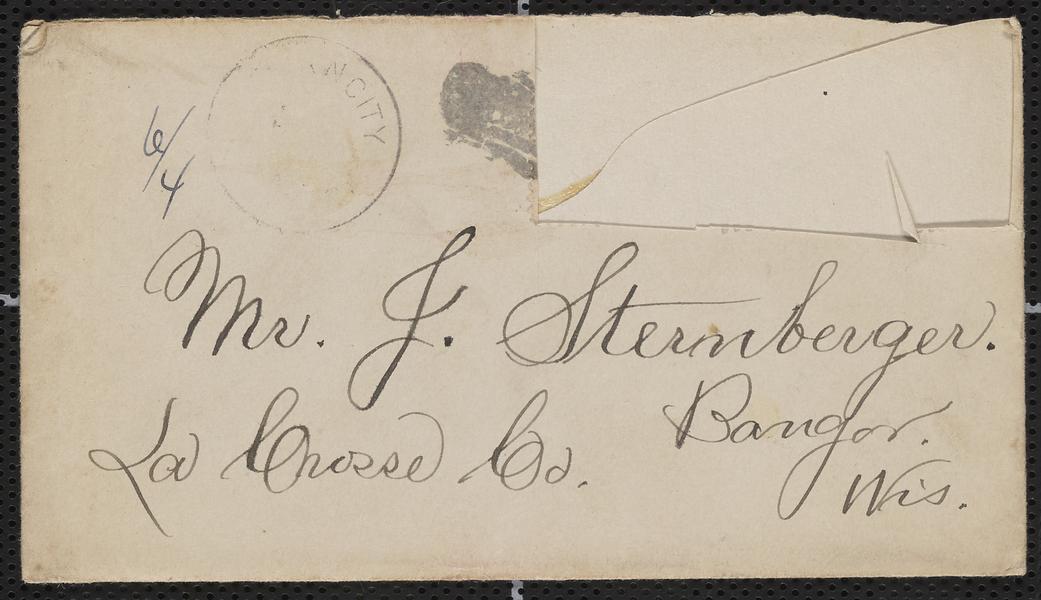 N CITY
6/4
Mr. J. Sternberger.
Bangor.
La Crosse Co.
Wis.